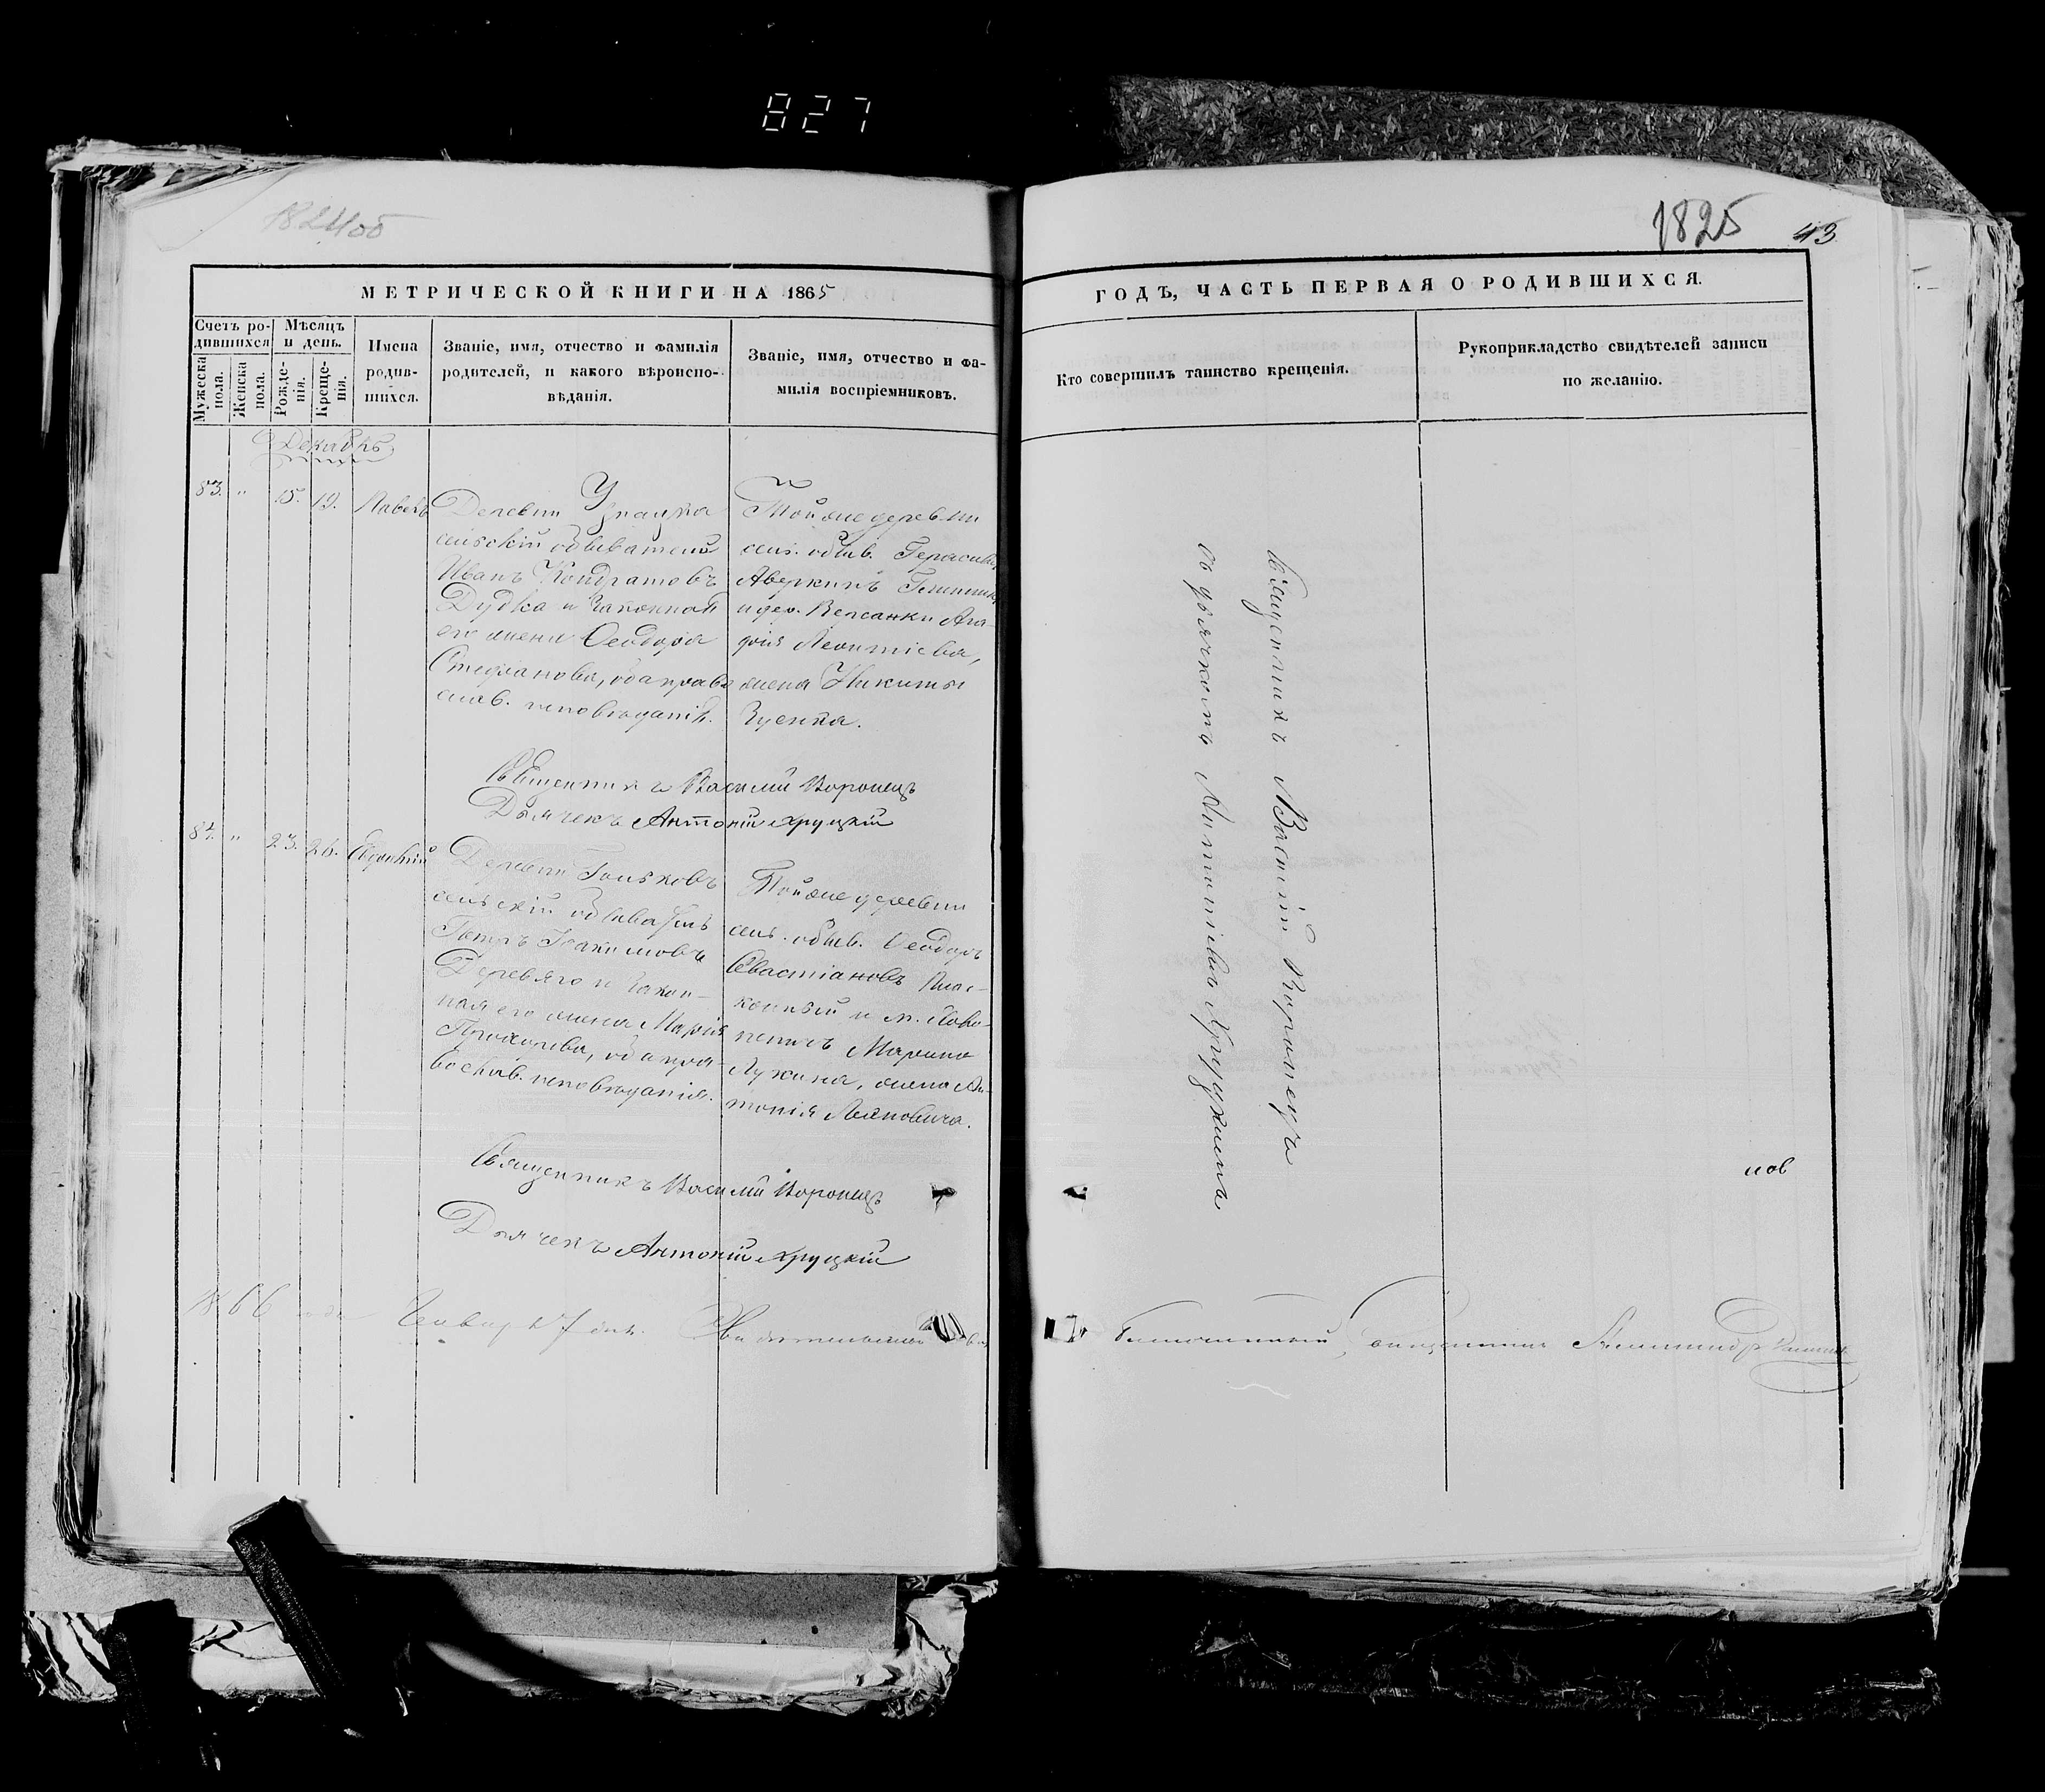 827
1824об
1825
43
МЕТРИЧЕСКОЙ КНИГИ НА 1865
ГОДЪ, ЧАСТЬ ПЕРВАЯ О РОДИВШИХСЯ.
Счетъ ро-
дившихся
Мужеска
пола.
Женска
пола.
Мѣсяцъ
и день.
Рожде-
нія.
Креще-
нія.
Имена
родив-
шихся.
Званіе, имя, отчество и фамилія
родителей, и какого вѣроиспо-
вѣданія.
Званіе, имя, отчество и фа-
милія воспріемниковъ.
Кто совершилъ таинство крещенія.
Рукоприкладство свидѣтелей записи
по желанію.
Декабрь
83. " 15. 19. Павелъ
Деревни
сельскій обыватель
Иванъ Кондратовъ
Дудка и законная
его жена Ѳеодора
Стефанова, оба право
слав. исповѣданія.
Тойже деревни
сел. обыв. Герасимъ
Аверкинъ
и дер. Агаѳія Леонтіева,
жена Никиты
Зуенка.
Священникъ Василій Воронецъ
Дьячекъ Антоній Хруцкій
84. " 23. 26. Евдокій
Деревни Гольковъ
сельскій обыватель
Петръ Іоакимовъ
Деревяго и закон-
ная его жена Марія
Прохорова, оба пра-
вослав. исповѣданія.
Тойже деревни
сел. обыв. Ѳеодоръ
Севастіановъ
и м.
Марина
Лукина, жена Ан-
тонія Леоновича.
Священникъ Василій Воронецъ
Дьячекъ Антоній Хруцкій
Священникъ Василій Воронецъ
съ дьячкомъ Антоніемъ Хруцкимъ
нов
1866 года Января 7 дня.
Благочинный, священникъ Александръ